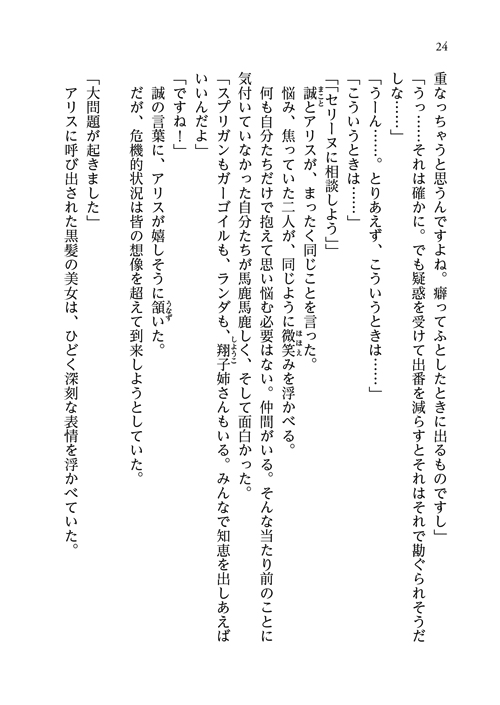 24
重なっちゃうと思うんですよね。癖ってふとしたときに出るものですし」
「うっ……それは確かに。でも疑惑を受けて出番を減らすとそれはそれで勘ぐられそうだ
しな……」
「うーん……。とりあえず、こういうときは……」
「こういうときは……」
「「セリーヌに相談しよう」」
誠とアリスが、まったく同じことを言った。
悩み、焦っていた二人が、同じように微笑みを浮かべる。
何も自分たちだけで抱えて思い悩む必要はない。仲間がいる。そんな当たり前のことに
気付いていなかった自分たちが馬鹿馬鹿しく、そして面白かった。
「スプリガンもガーゴイルも、ランダも、翔子姉さんもいる。みんなで知恵を出しあえば
いいんだよ」
「ですね！」
誠の言葉に、アリスが嬉しそうに頷いた。
だが、危機的状況は皆の想像を超えて到来しようとしていた。
「大問題が起きました」
アリスに呼び出された黒髪の美女は、ひどく深刻な表情を浮かべていた。